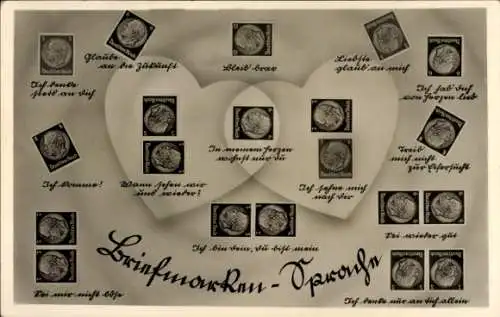 Glaube
an die Zukunft
Bleib brav
Liebste
glaub an mich
Ich denke
stets an dich
Ich hab' dich
von Herzen lieb
In meinem Herzen
wohnst nur du
Treib
mich nicht
zur Eifersucht
Ich komme!
Wann sehen wir
uns wieder?
Ich sehne mich
nach dir
Ich bin dein, du bist mein
Sei wieder gut
Briefmarken-Sprache
Sei mir nicht böse
Ich denke nur an dich allein